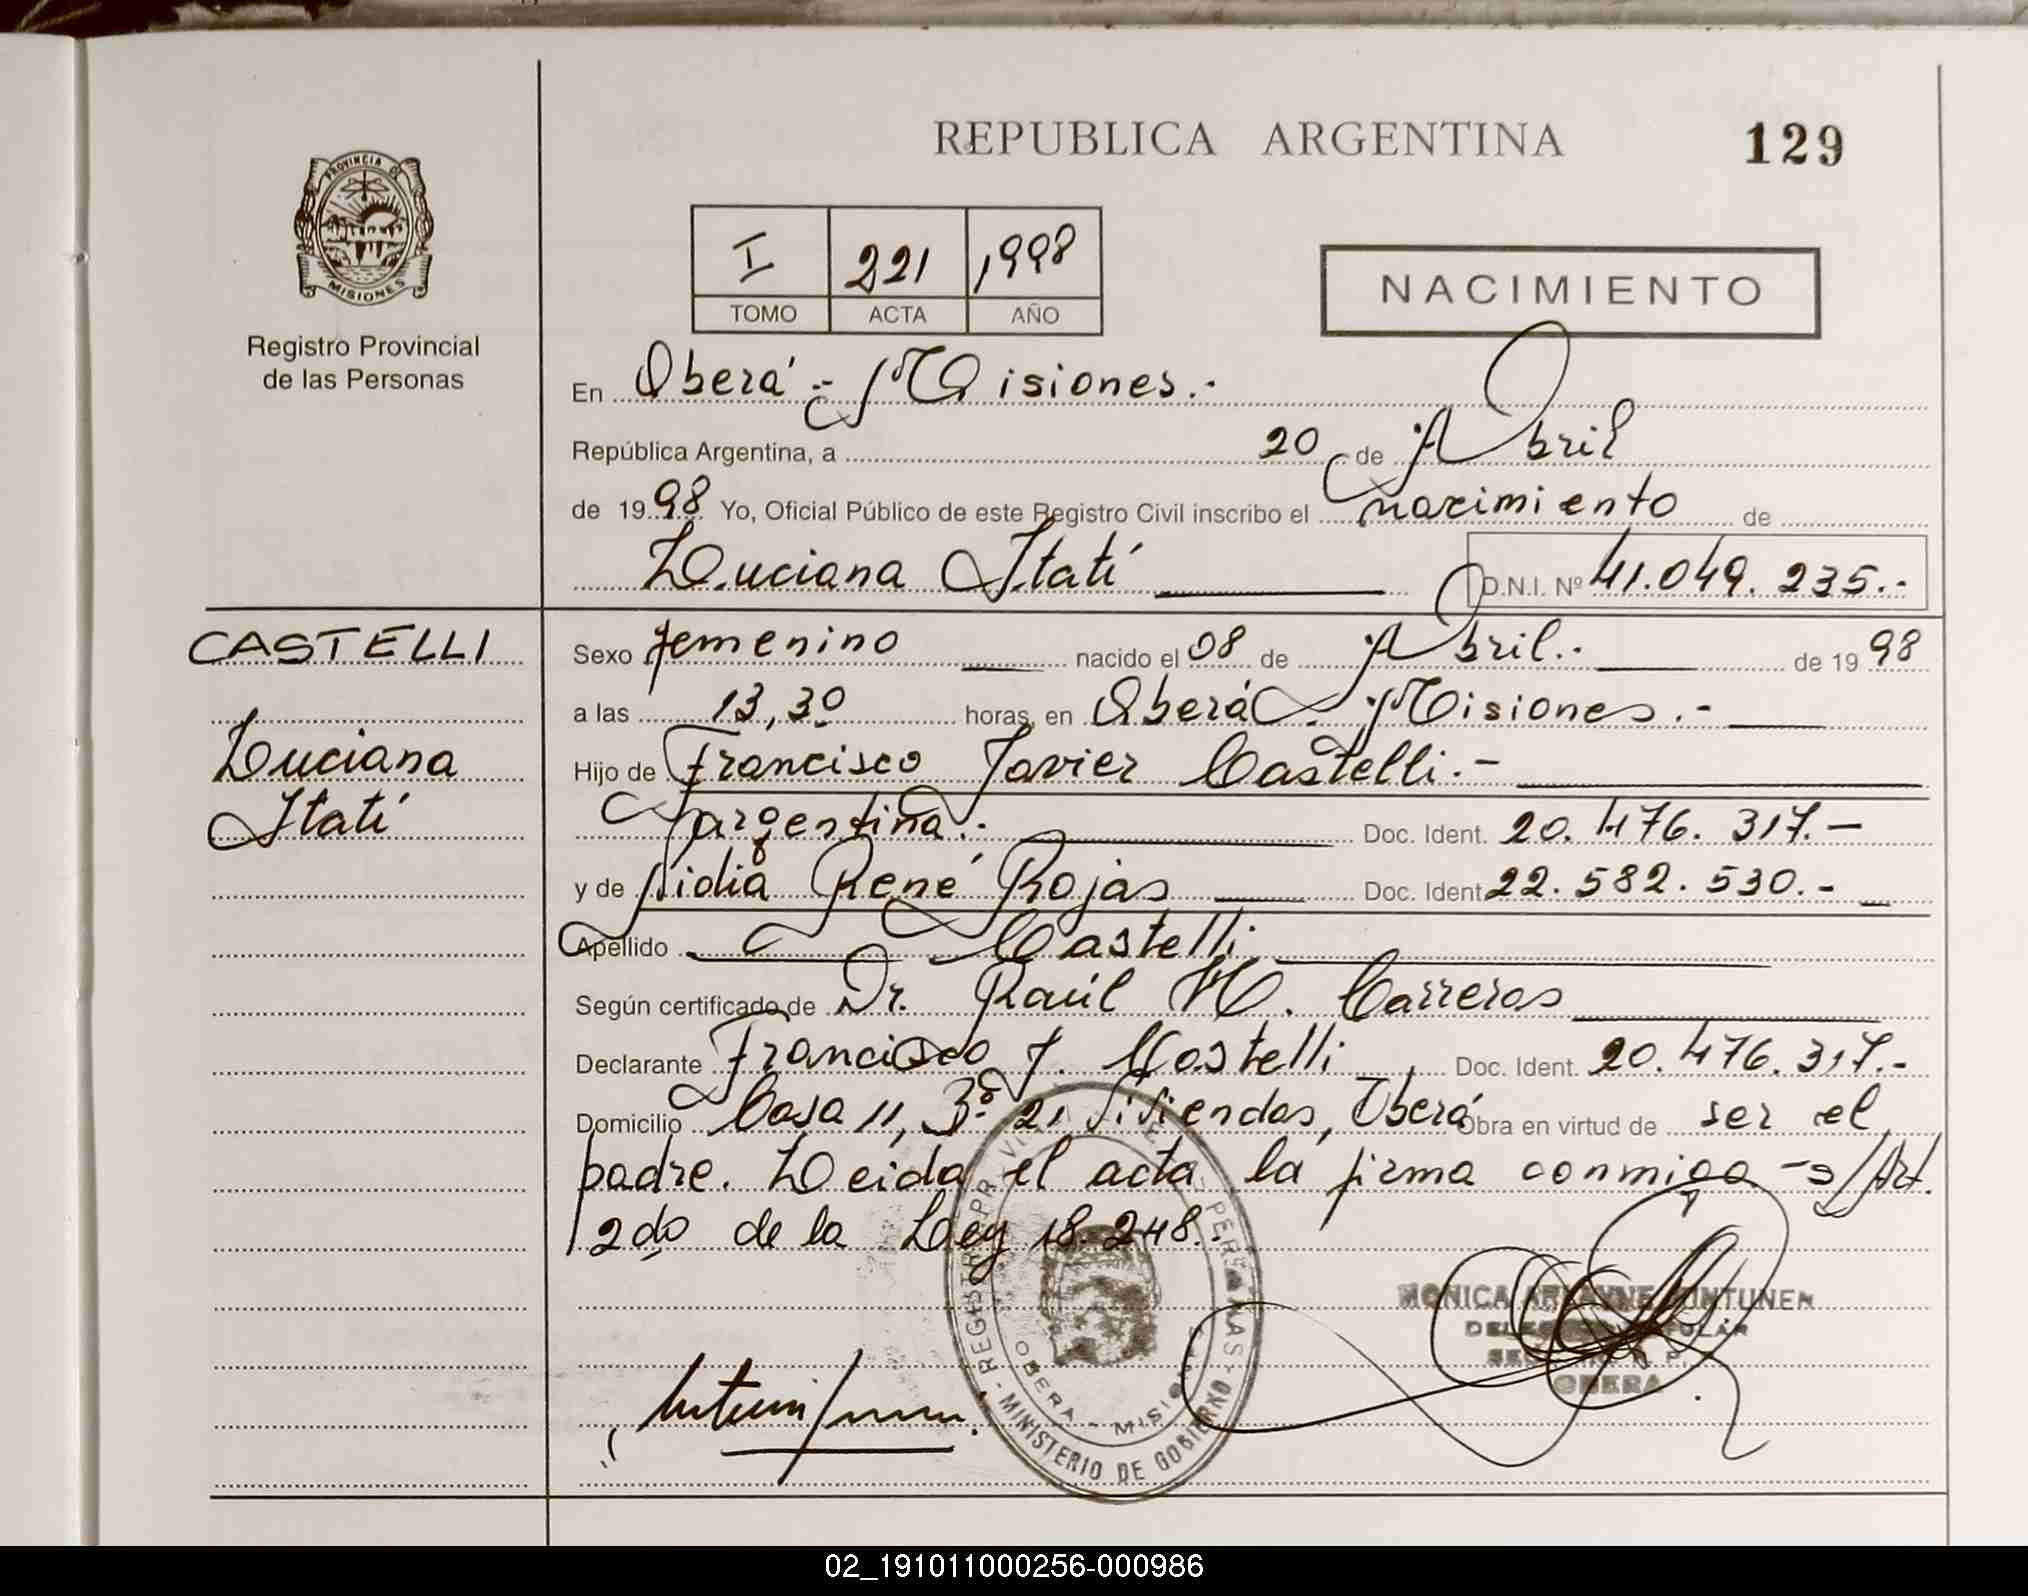 REPUBLICA ARGENTINA
129
PROVINCIA DE
MISIONES
Registro Provincial
de las Personas
I 221 1998
TOMO ACTA AÑO
NACIMIENTO
En Oberá - Misiones.-
República Argentina, a 20 de Abril
de 1998 Yo, Oficial Público de este Registro Civil inscribo el nacimiento de
Luciana Itatí D.N.I. Nº 41.049.235.-
CASTELLI
Luciana
Itatí
Sexo femenino nacido el 08 de Abril.- de 1998
a las 13,30 horas, en Oberá - Misiones.-
Hijo de Francisco Javier Castelli.-
Argentina.- Doc. Ident. 20.476.317.-
y de Nidia René Rojas Doc. Ident. 22.582.530.-
Apellido Castelli
Según certificado de Dr. Raúl H. Carreras
Declarante Francisco J. Castelli Doc. Ident. 20.476.317.-
Domicilio Casa 11, Bº 21 Viviendas, Oberá Obra en virtud de ser el
padre. Leida el acta la firma conmigo - s/Art.
2do de la Ley 18.248.-
MONICA
OBERA
OBERA - MISIONES
MINISTERIO DE GOBIERNO
02_191011000256-000986